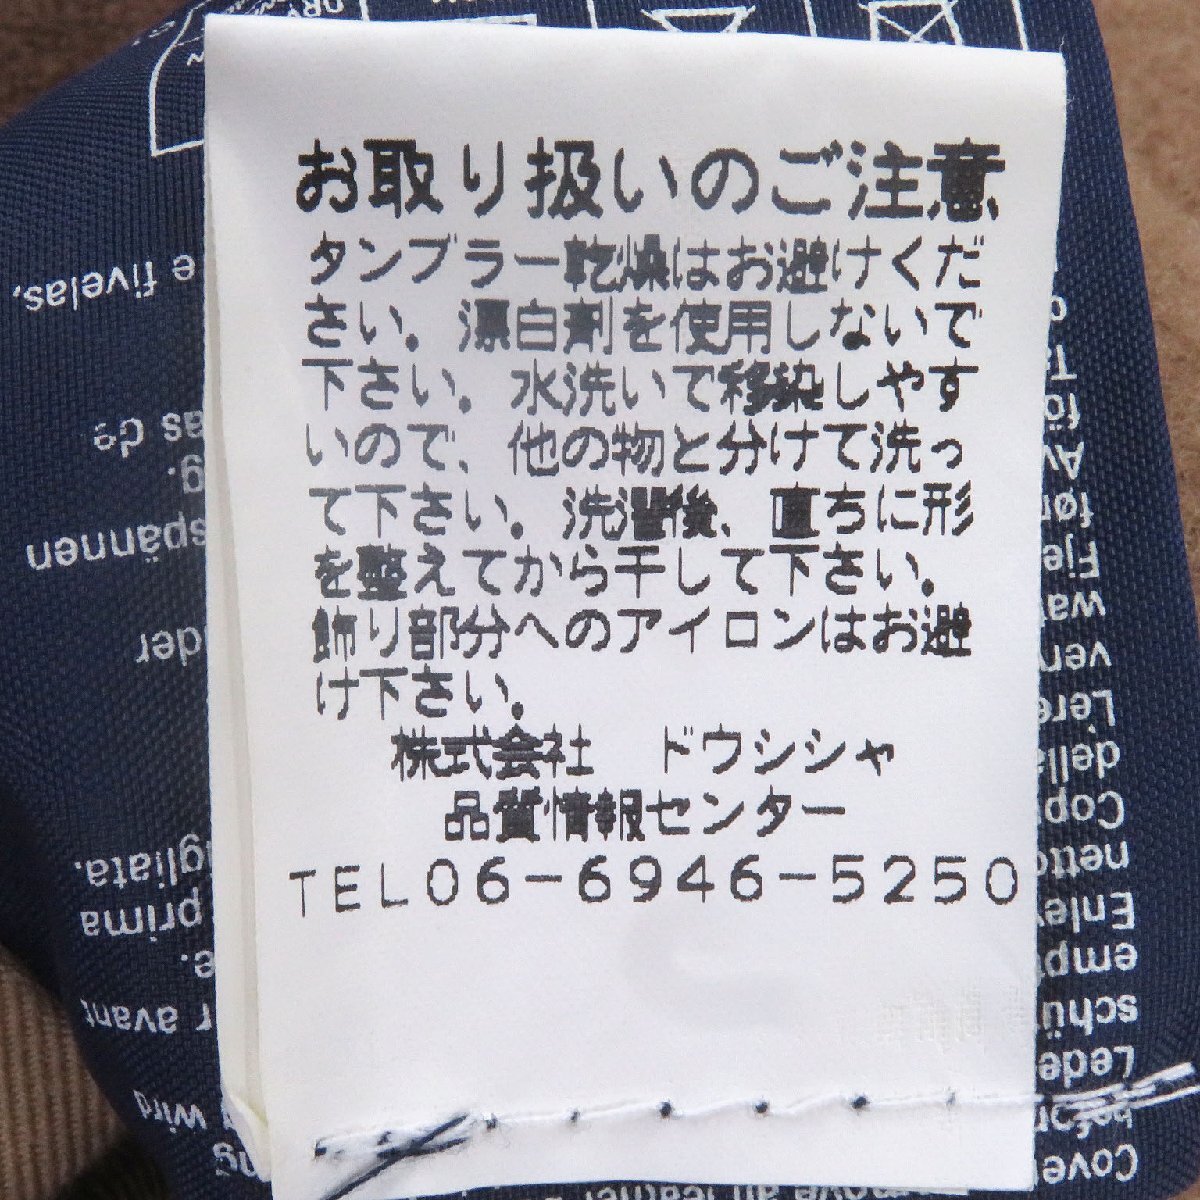 お取り扱いのご注意
タンブラー乾燥はお避けくだ
さい。漂白剤を使用しないで
下さい。水洗いで移染しやす
いので、他の物と分けて洗っ
て下さい。洗濯後、直ちに形
を整えてから干して下さい。
飾り部分へのアイロンはお避
け下さい。
株式会社　ドウシシャ
品質情報センター
TEL06-6946-5250
e fivelas,
spännen
gliata.
prima
avant
wird
für
Fje
verv
della
Cop
netto
Enlev
emp
schü
Lede
Cove